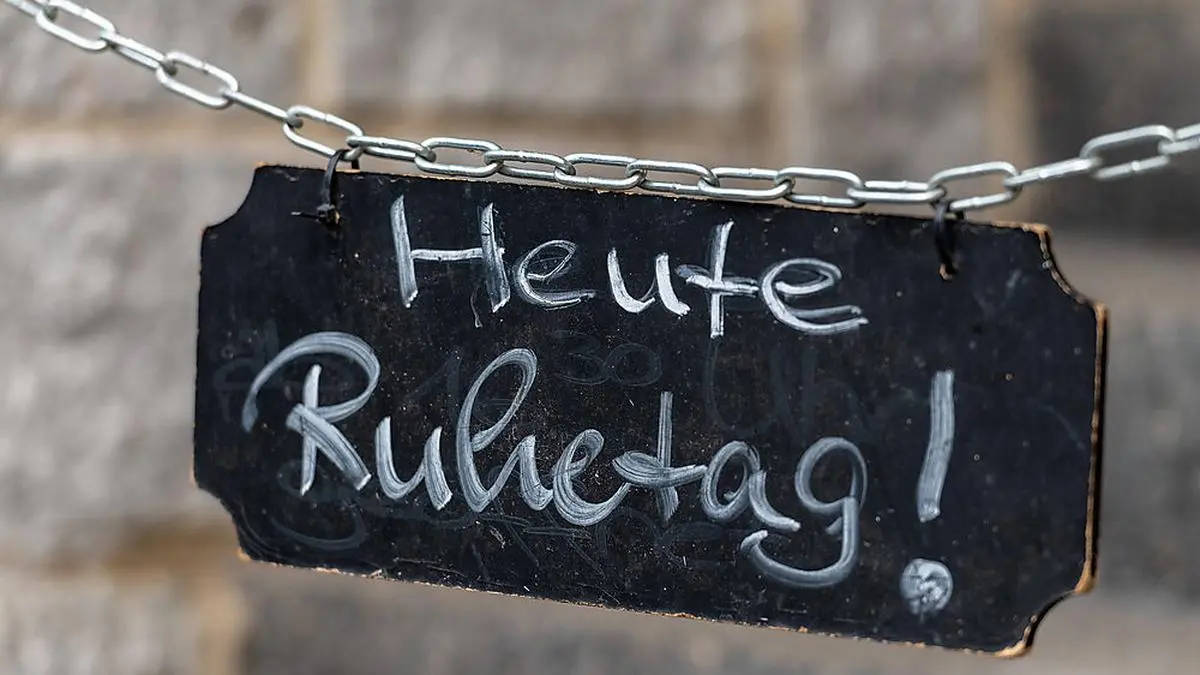 Heute
Ruhetag!